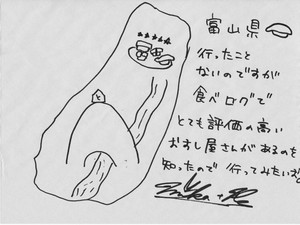 富山県
行ったこと
ないのですが
食べログで
とても評価の高い
おすし屋さんがあるのを
知ったので 行ってみたいな。